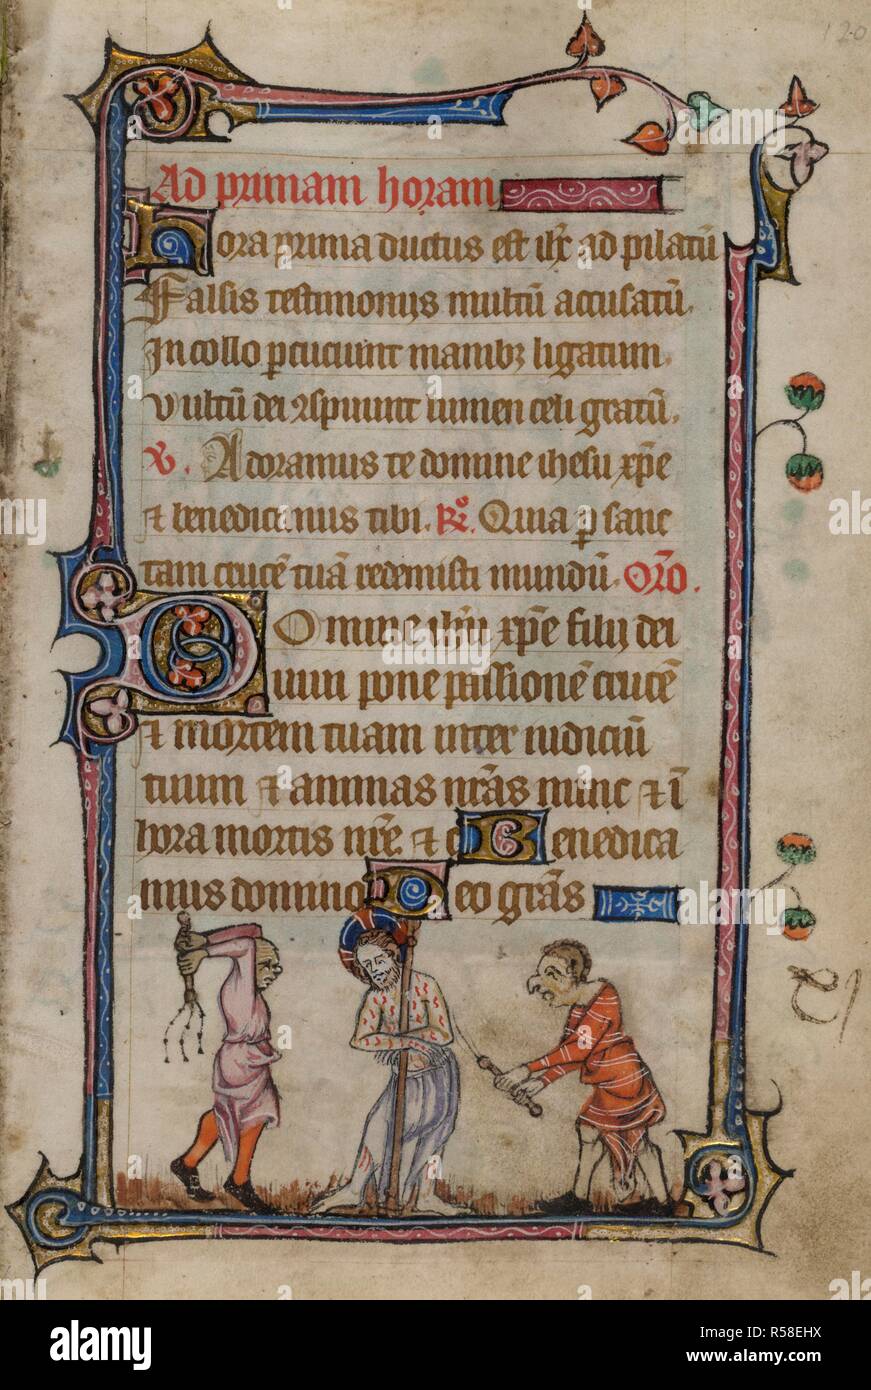 120
Ad primam horam
Hora prima ductus est ihc ad pilatū
Falsis testimoniis multū accusatū.
In collo pcuciunt manibȝ ligatum.
Vultū dei ꝯspuunt lumen celi gratū.
V. Adoramus te domine ihesu xp̄e
et benedicimus tibi. R̊. Quia p sanc
tam crucē tuā redemisti mundū. Orō.
Domine ihū xp̄e filii dei
uiui pone passionē crucē
et mortem tuam inter iudiciū
tuum et animas nrās nunc et ī
hora mortis nrē et c Benedica
mus domino Deo grās
alamy
Image ID: R58EHX
www.alamy.com